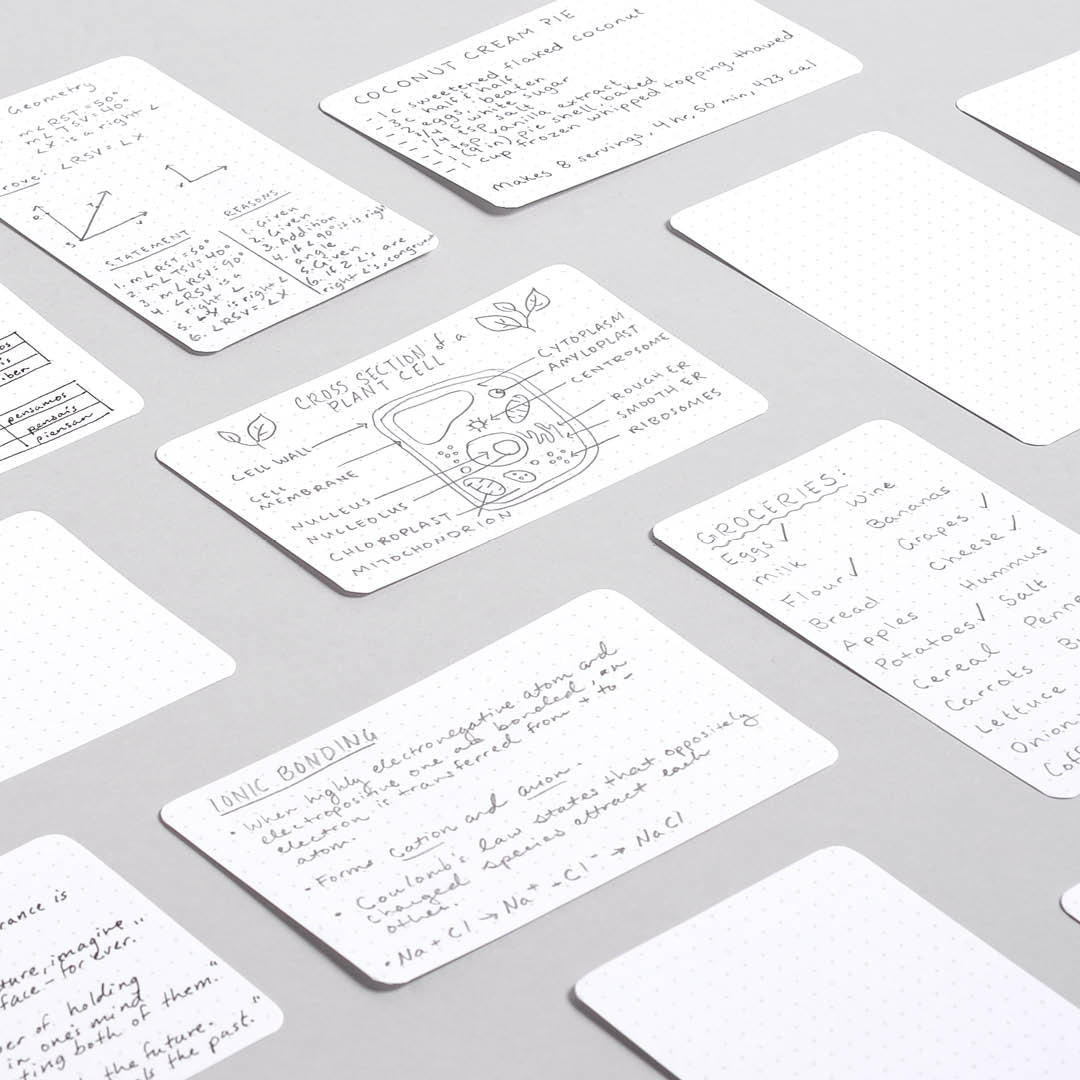 Geometry
m∠RST = 50°
m∠TSV = 40°
∠X is a right ∠
rove: ∠RSV = ∠X
STATEMENT
1. m∠RST = 50°
2. m∠TSV = 40°
3. m∠RSV = 90°
4. ∠RSV is a
right ∠
5. ∠X is right ∠
6. ∠RSV = ∠X
REASONS
1. Given
2. Given
3. Addition
4. If ∠ 90° it is right
angle
5. Given
6. if 2 ∠'s are
right ∠'s, congruent
COCONUT CREAM PIE
- 1 c sweetened flaked coconut
- 3 c half & half
- 2 eggs, beaten
- 3/4 c white sugar
- 1/4 tsp salt
- 1 tsp vanilla extract
- 1 (9in) pie shell, baked
- 1 cup frozen whipped topping, thawed
Makes 8 servings, 4 hr, 50 min, 423 cal
pensamos
pensais
piensan
CROSS SECTION of a
PLANT CELL
CELL WALL
CELL
MEMBRANE
NUCLEUS
NUCLEOLUS
CHLOROPLAST
MITOCHONDRION
CYTOPLASM
AMYLOPLAST
CENTROSOME
ROUGH ER
SMOOTH ER
RIBOSOMES
GROCERIES:
Eggs ✓
Milk
Flour ✓
Bread
Apples
Potatoes ✓
Cereal
Carrots
Lettuce
Onion
Coff
Wine
Bananas
Grapes ✓
Cheese ✓
Hummus
Salt
Penne
B
IONIC BONDING
• When highly electronegative atom and
electropositive one are bonded, an
electron is transferred from + to -
atom.
• Forms cation and anion.
• Coulomb's law states that oppositely
charged species attract each
other.
• Na + Cl → Na⁺ + Cl⁻ → NaCl
rance is
ture, imagine
face - for ever."
er of holding
in one's mind
ting both of them."
the future.
ls the past."